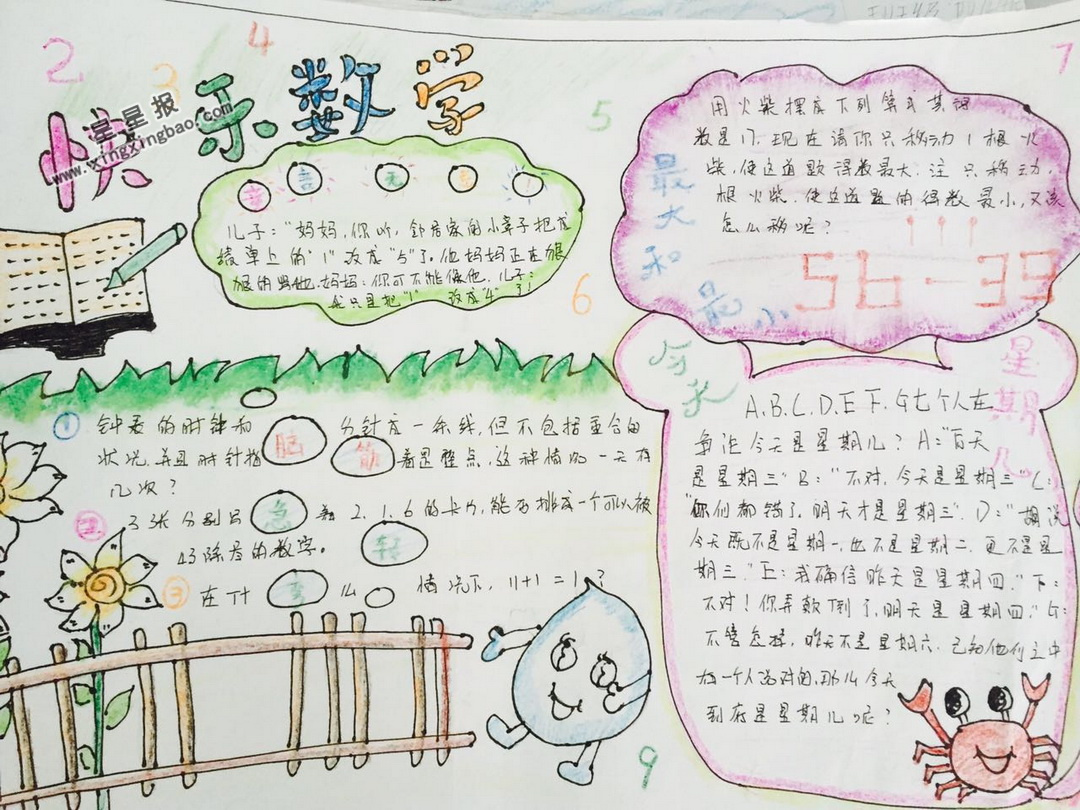 快乐数学
星星报
www.xingxingbao.com
2
3
4
5
6
7
9
童言无忌!
儿子:“妈妈,你听,邻居家的小辛子把成
绩单上的“1”改成“5”了。他妈妈正在狠
狠的骂他。妈妈:你可不能像他,儿子:
我只是把“1”改成“4”了!
最大和最小
用火柴摆成下列算式其得
数是17.现在请你只移动1根火
柴,使这道题得数最大;注只移动
根火柴,使这道题的得数最小,又该
怎么移呢?
56-39
脑筋急转
① 钟表的时钟和分针成一条线,但不包括重合的
状况,并且时针指着是整点,这种情况一天有
几次?
② 3张分别写 2.1.6的卡片,能否排成一个可以被
43除尽的数字。
③ 在什么情况下,11+1=1?
今天星期几
A.B.C.D.E.F.G七个人在
争论今天是星期几?A:“后天
是星期三”B:“不对,今天是星期三”C:
“你们都错了,明天才是星期三”.D:“胡说
今天既不是星期一,也不是星期二,更不是星
期三.”E:我确信昨天是星期四.”F:
不对!你弄颠倒了,明天是星期四.”G:
不管怎样,昨天不是星期六.已知他们之中
有一个人说对的,那么今天
到底是星期几呢?